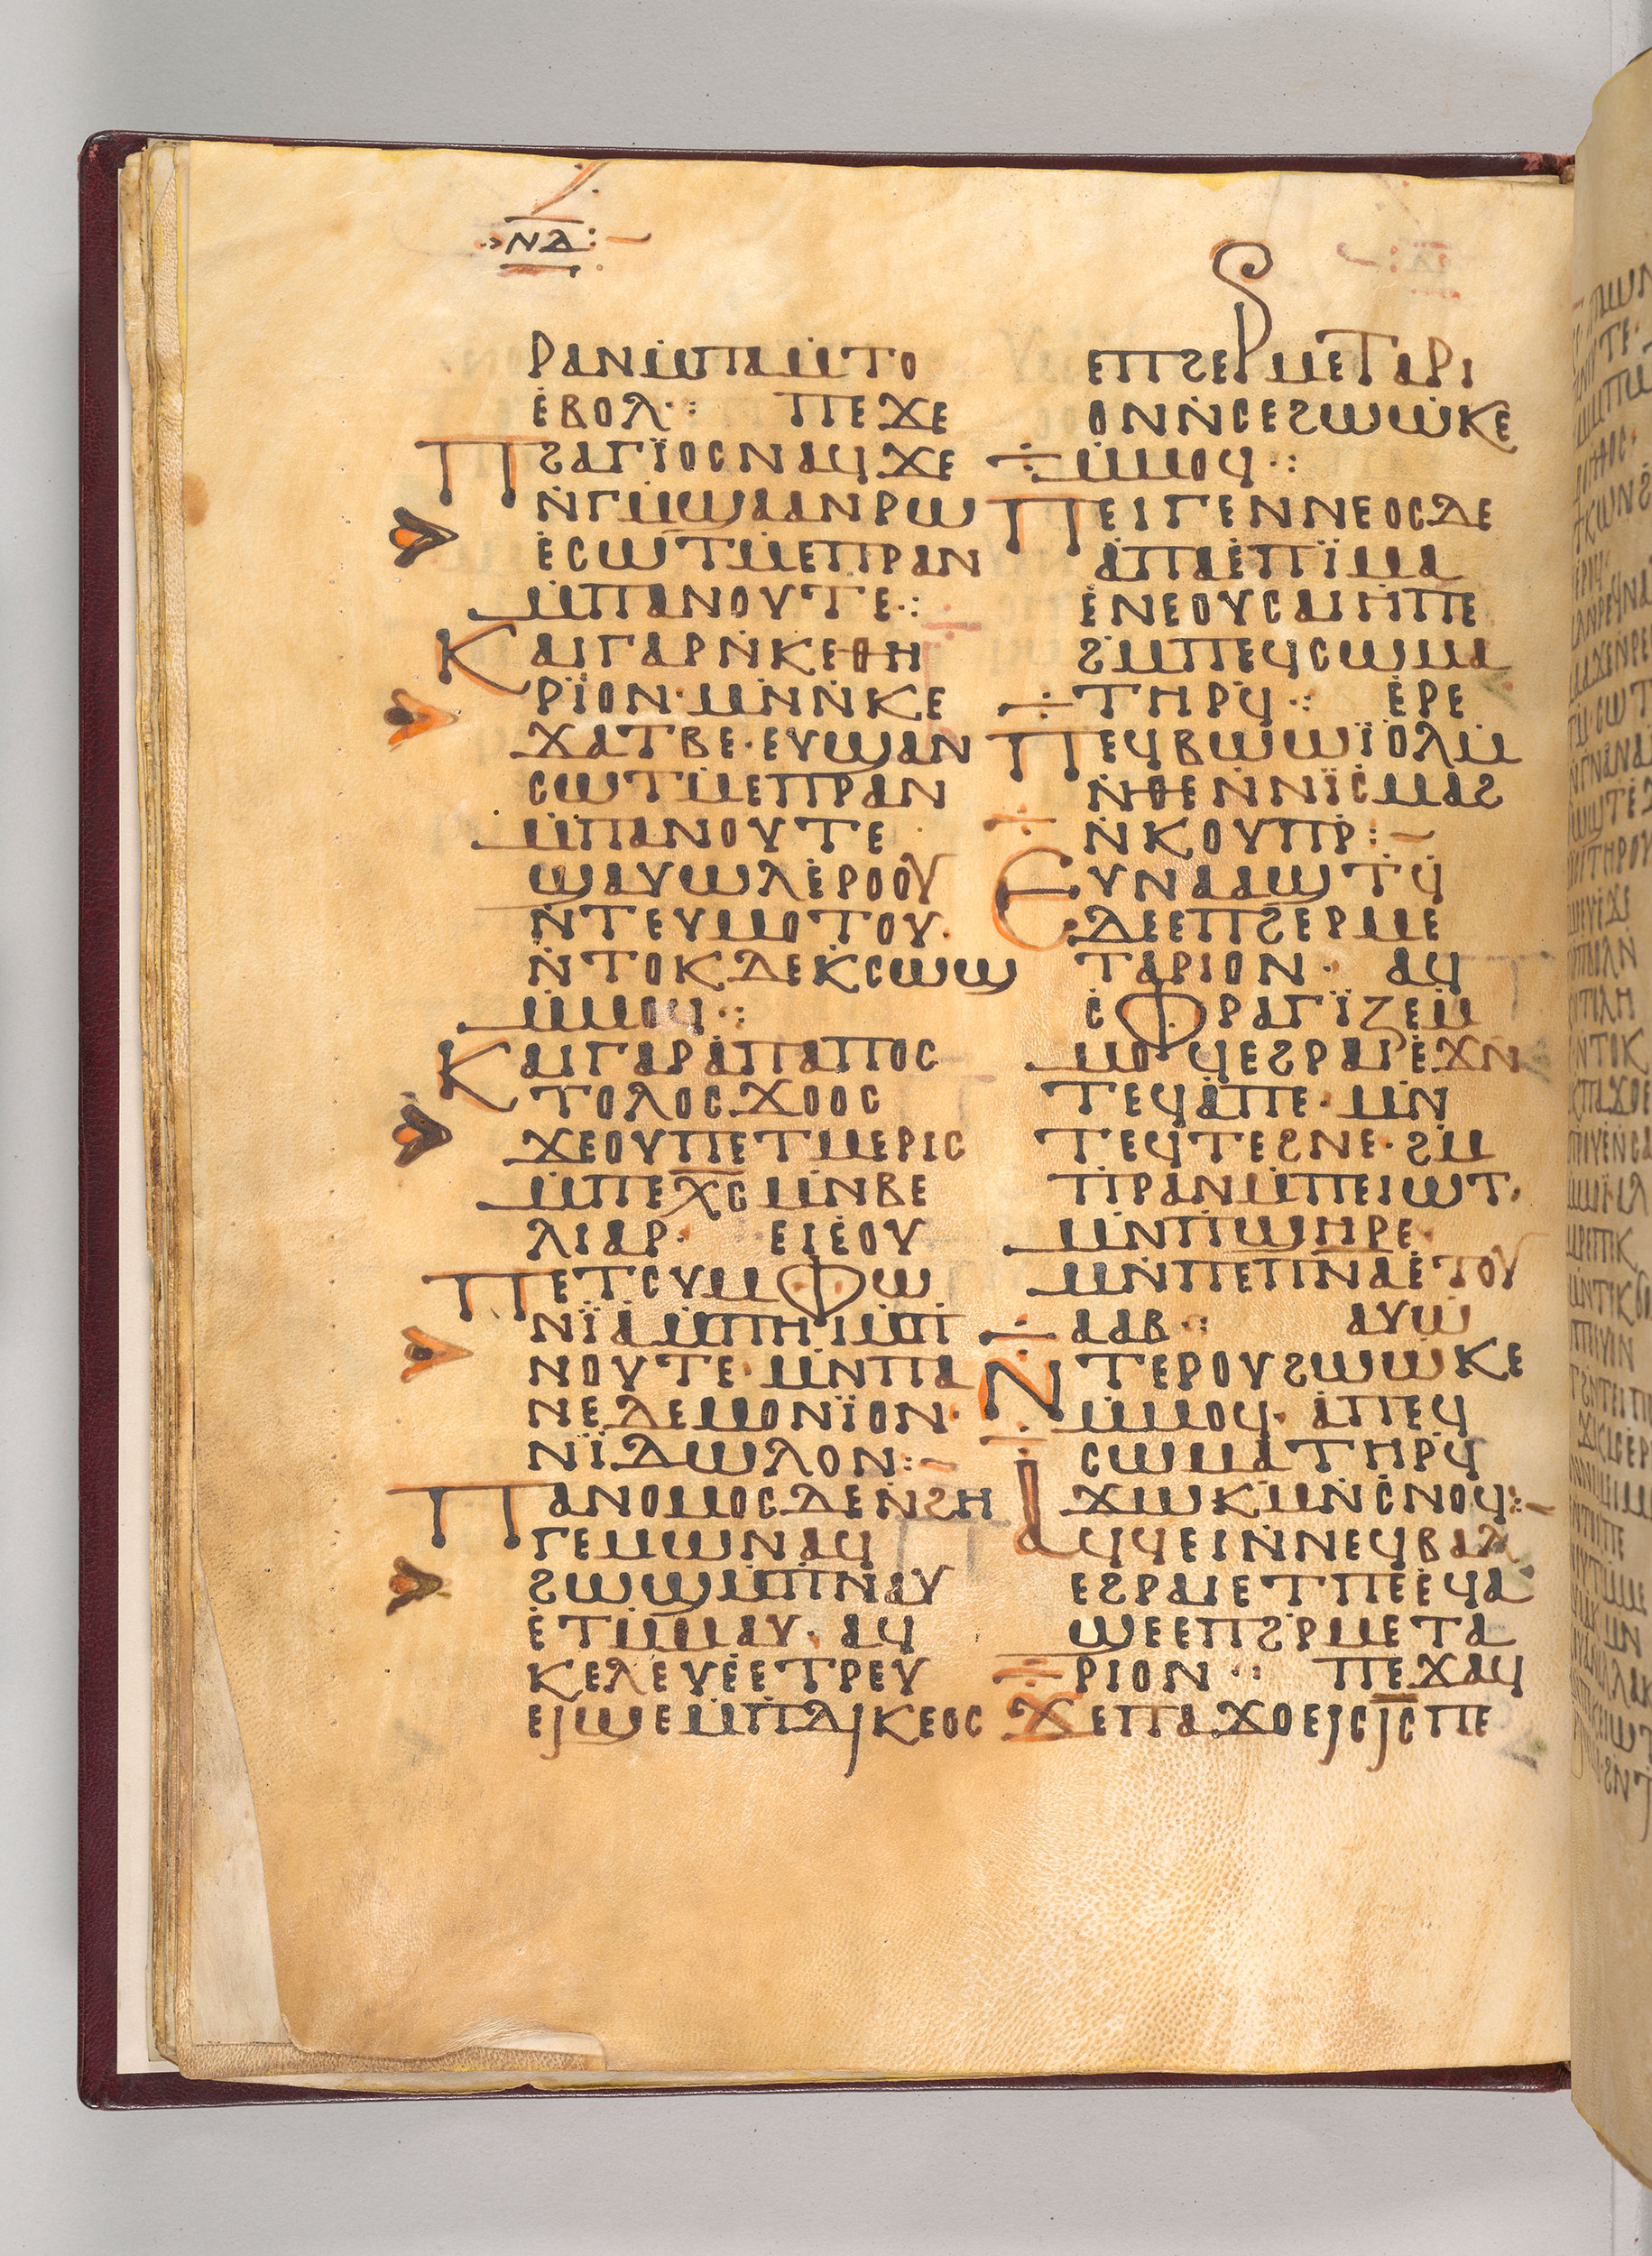 ⲛⲇ
ⲣⲁⲛⲙ̇ⲡⲁⲙ̇ⲧⲟ
ⲉ̇ⲃⲟⲗ·: ⲡⲉϫⲉ
ⲡϩⲁⲅⲓ̈ⲟⲥⲛⲁϥϫⲉ
ⲛ̇ⲅⲙ̇ϣⲁⲁⲛⲣⲱ
ⲉ̇ⲥⲱⲧⲙ̇ⲉⲡⲣⲁⲛ
ⲙ̇ⲡⲁⲛⲟⲩⲧⲉ·:
ⲕⲁⲓⲅⲁⲣⲛ̇ⲕⲉⲑⲏ
ⲣⲓ̈ⲟⲛ·ⲙⲛ̇ⲛ̇ⲕⲉ
ϫⲁⲧⲃⲉ·ⲉⲩϣⲁⲛ
ⲥⲱⲧⲙ̇ⲉⲡⲣⲁⲛ
ⲙ̇ⲡⲁⲛⲟⲩⲧⲉ
ϣⲁⲩⲱⲗⲉ̇ⲣⲟⲟⲩ
ⲛ̇ⲧⲉⲩⲙⲟⲧⲟⲩ·
ⲛ̇ⲧⲟⲕⲇⲉⲕ̇ⲥⲱϣ
ⲙ̇ⲙⲟϥ·:
ⲕⲁⲓⲅⲁⲣⲁ̇ⲡⲁⲡⲟⲥ
ⲧⲟⲗⲟⲥϫⲟⲟⲥ
ϫⲉⲟⲩⲡⲉⲧⲙⲉⲣⲓⲥ
ⲙ̇ⲡⲉⲭ̅ⲥ̅ⲙⲛ̇ⲃⲉ
ⲗⲓⲁⲣ· ⲉⲓⲉ̇ⲟⲩ
ⲡⲉⲧⲥⲩⲙⲫⲱ
ⲛⲓ̈ⲁ̇ⲙ̇ⲡⲏⲓⲙ̇ⲡ
ⲛⲟⲩⲧⲉ·ⲙⲛ̇ⲡⲁ
ⲛⲉⲇⲉⲙⲟⲛⲓ̈ⲟⲛ·
ⲛⲓ̈ⲇⲱⲗⲟⲛ:–
ⲡⲁⲛⲟⲙⲟⲥⲇⲉⲛ̇ϩⲏ
ⲅⲉⲙⲱⲛⲁϥ
ϩⲱⲱⲙ̇ⲡⲛⲁⲩ
ⲉ̇ⲧⲙ̇ⲙⲁⲩ·ⲁϥ
ⲕⲉⲗⲉⲩⲉ̇ⲉⲧⲣⲉⲩ
ⲉⲓϣⲉⲙ̇ⲡⲇⲓⲕⲉⲟⲥ
ⲉⲡϩⲉⲣⲙⲉⲧⲁⲣⲓ
ⲟⲛⲛ̇ⲥⲉϩⲱⲱ̇ⲕⲉ
ⲙ̇ⲙⲟϥ·:
ⲡⲉⲓⲅⲉⲛⲛⲉⲟⲥⲇⲉ
ⲁ̇ⲡⲁⲉ̇ⲡⲓ̈ⲙⲁ
ⲉ̇ⲛⲉⲟⲩⲥⲁⲓⲏⲡⲉ
ϩⲙ̇ⲡⲉϥⲥⲱⲙⲁ
ⲧⲏⲣϥ̇·: ⲉ̇ⲣⲉ
ⲡⲉϥⲃⲱⲱⲓ̈ⲟ̇ⲗⲙ̇
ⲛ̇ⲑⲉⲛⲛⲓ̈ⲥⲙⲁϩ
ⲛ̇ⲕⲟⲩⲡⲣ̇:–
ⲉⲩⲛⲁⲁϣⲧϥ̇
ⲇⲉⲉⲡϩⲉⲣⲙⲉ
ⲧⲁⲣⲓⲟⲛ· ⲁϥ
ⲥ̇ⲫⲣⲁⲅⲓ̈ⲍⲉⲙ̇
ⲙⲟϥⲉϩⲣⲁⲓⲉ̇ϫⲛ
ⲧⲉϥⲁ̇ⲡⲉ·ⲙⲛ̇
ⲧⲉϥⲧⲉϩⲛⲉ·ϩⲙ̇
ⲡⲣⲁⲛⲙ̇ⲡⲉⲓⲱⲧ·
ⲙⲛ̇ⲡϣⲏⲣⲉ·
ⲙⲛ̇ⲡⲉⲡⲛ̅ⲁ̅ⲉ̇ⲧⲟⲩ
ⲁⲁⲃ·: ⲁⲩⲱ
ⲛⲧⲉⲣⲟⲩϩⲱⲱⲕⲉ
ⲙ̇ⲙⲟϥ· ⲁ̇ⲡⲉϥ
ⲥⲱⲙⲁⲧⲏⲣϥ̇
ϫⲱⲕⲙⲛ̇ⲥ̇ⲛⲟϥ:–
ⲁϥϥⲉⲓⲛ̇ⲛⲉϥⲃⲁⲗ
ⲉϩⲣⲁⲓⲉⲧⲡⲉⲉ̇ϥⲁ
ϣⲉⲉⲡϩⲣ̇ⲙⲉⲧⲁ
ⲣⲓⲟⲛ·: ⲡⲉϫⲁϥ
ϫⲉⲡⲁϫⲟⲉⲓⲥⲓ̅ⲥ̅ⲡⲉ